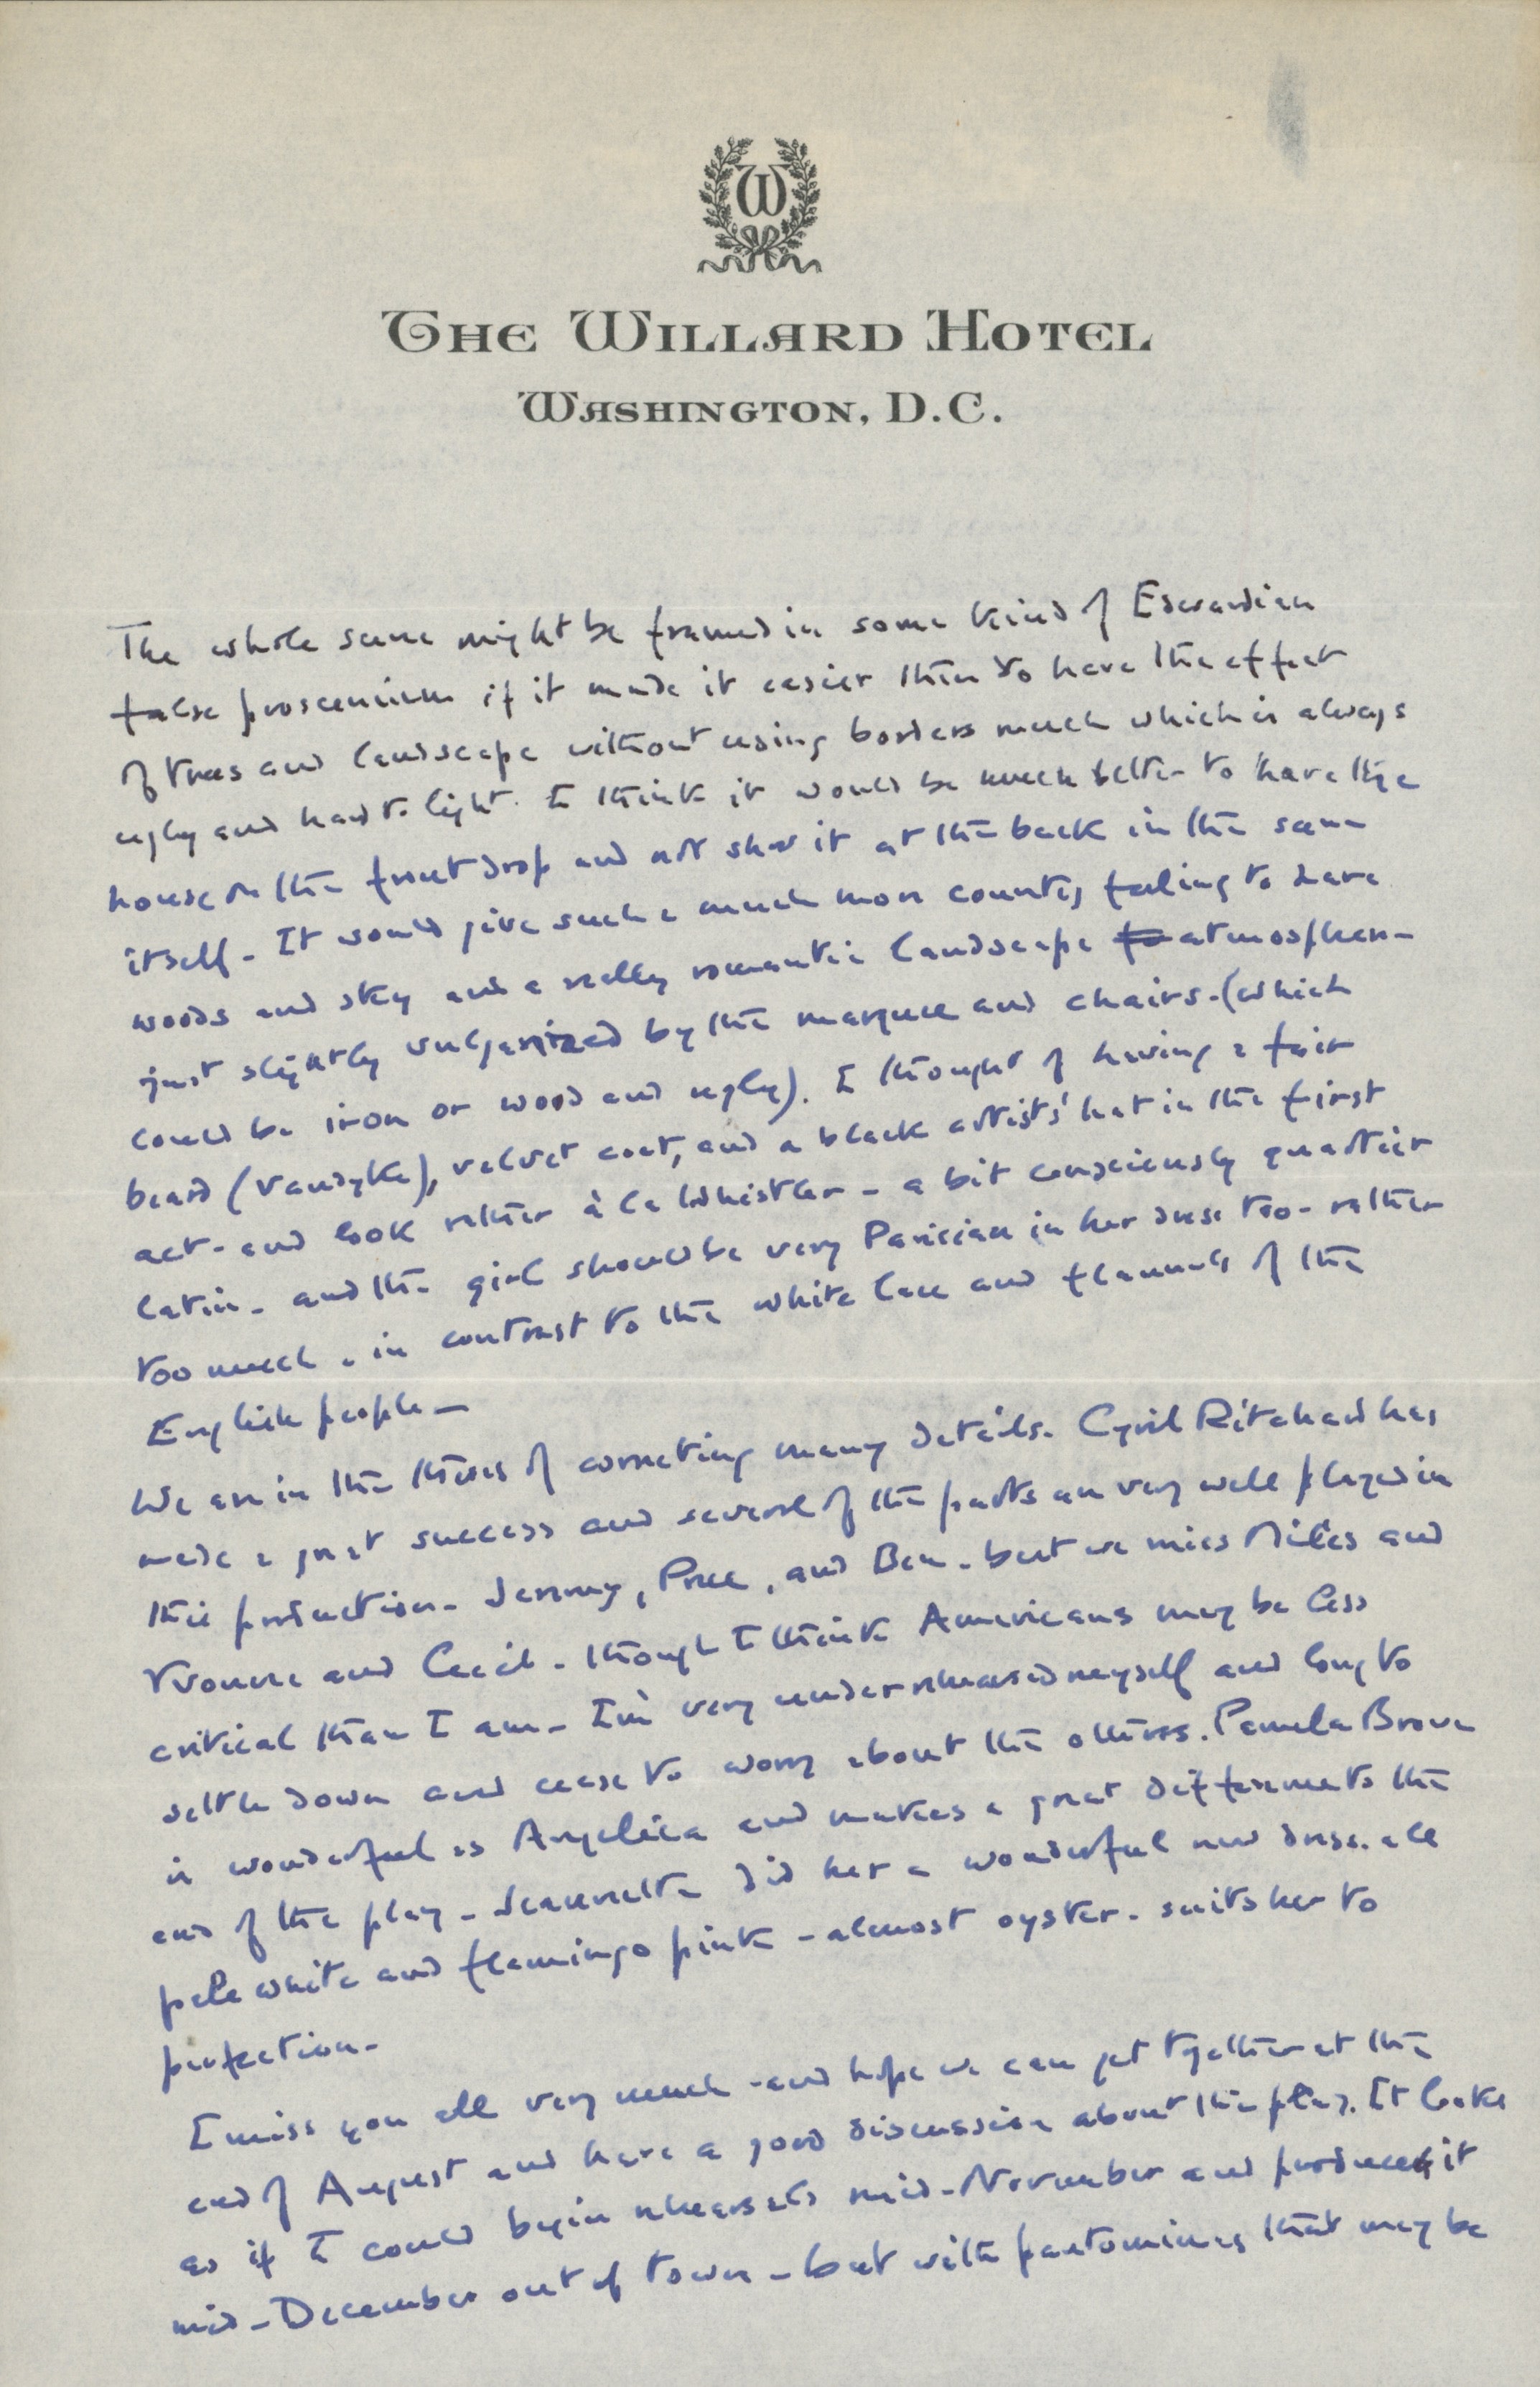 W
THE WILLARD HOTEL
WASHINGTON, D.C.
The whole scene might be framed in some kind of Edwardian
false proscenium if it made it easier then to have the effect
of trees and landscape without using borders much which is always
ugly and hard to light. I think it would be much better to have the
house on the front drop and not show it at the back in the scene
itself - It would give such a much more country feeling to have
woods and sky and a really romantic landscape atmosphere -
just slightly vulgarized by the marquee and chairs - (which
could be iron or wood and ugly). I thought of having a fair
beard (Vandyke), velvet coat, and a black artists' hat in the first
act - and look rather à la Whistler - a bit consciously quartier
latin - and the girl should be very Parisian in her dress too - rather
too much - in contrast to the white lace and flannels of the
English people -
We are in the throes of correcting many details. Cyril Ritchard has
made a great success and several of the parts are very well played in
this production - Jeremy, Prue, and Ben - but we miss Miles and
Yvonne and Cecil - though I think Americans may be less
critical than I am - I'm very under rehearsed myself and long to
settle down and cease to worry about the others. Pamela Brown
is wonderful as Angelica and makes a great difference to the
end of the play - Jeannetta did her a wonderful new dress - all
pale white and flamingo pink - almost oyster - suits her to
perfection -
I miss you all very much - and hope we can get together at the
end of August and have a good discussion about the play. It looks
as if I could begin rehearsals mid-November and produce it
mid-December out of town - but with pantomimes that may be